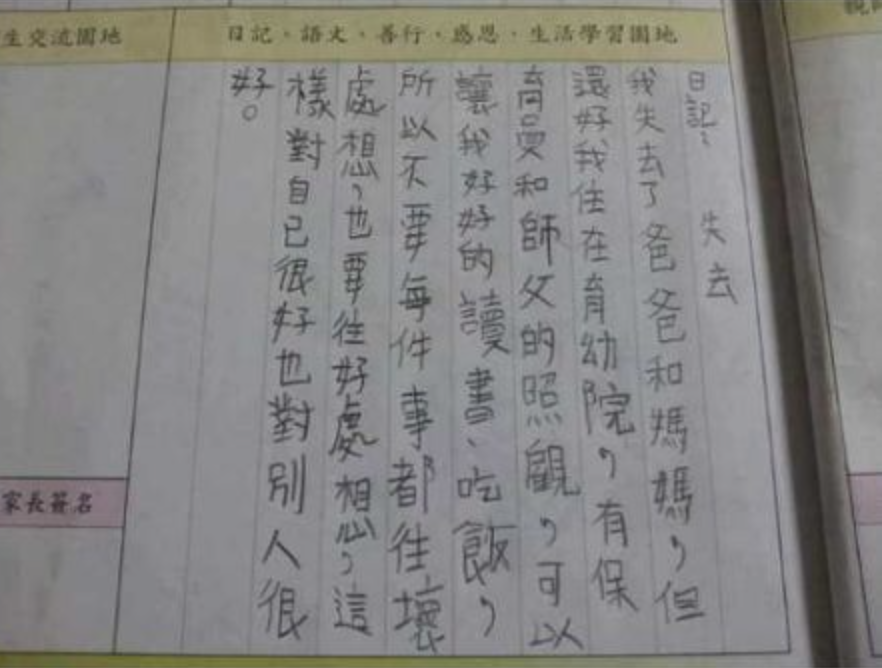 生交流園地
日記、語文、善行、感恩、生活學習園地
日記: 失去
我失去了爸爸和媽媽,但
還好我住在育幼院,有保
育員和師父的照顧,可以
讓我好好的讀書、吃飯,
所以不要每件事都往壞
處想,也要往好處想,這
樣對自已很好也對別人很
好。
家長簽名